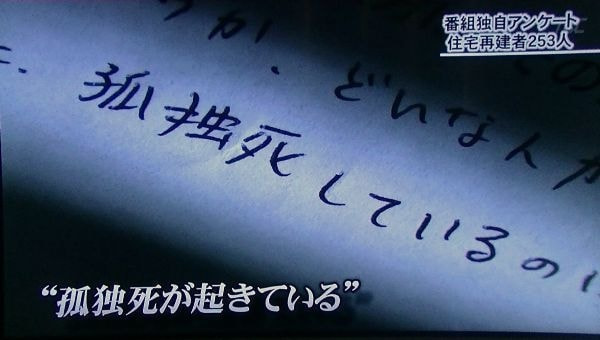 番組独自アンケート
住宅再建者253人
か、どんな人が
孤独死しているの
“孤独死が起きている”